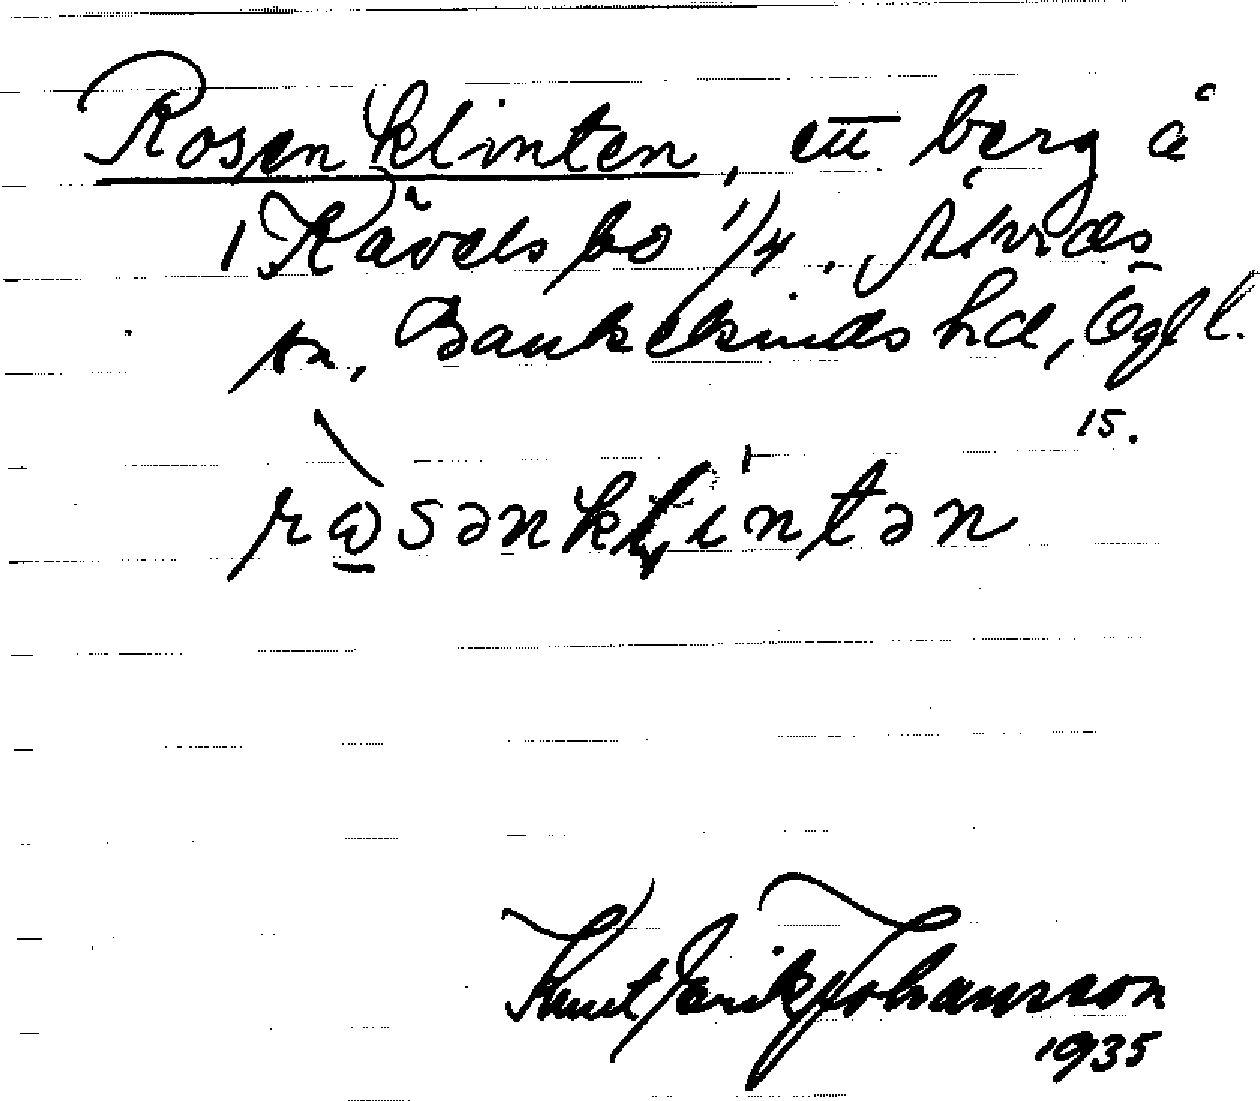 Rosenklinten, ett berg å
1 Kävelsbo 1/4. Åtvids
sn, Bankekinds hd, Ögl.
15.
rωsənklintən
Knut Erik Johansson
1935